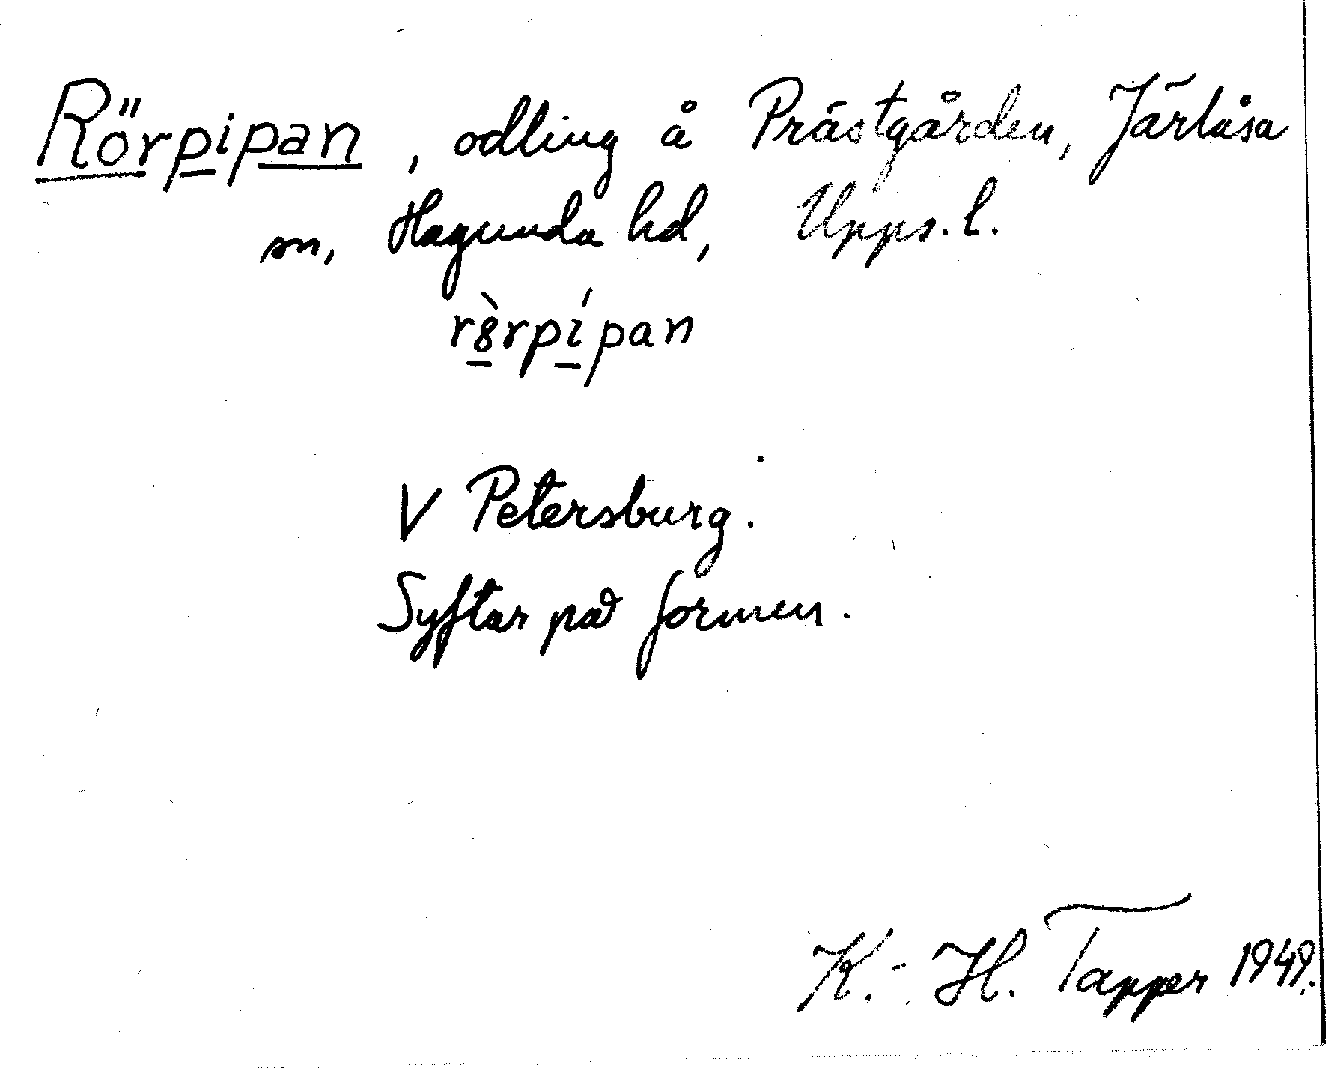 Rörpipan, odling å Prästgården, Järlåsa
sn, Hagunda hd, Upps. l.
rö̀rpípan
V Petersburg.
Syftar på formen.
K.-H. Tapper 1949.